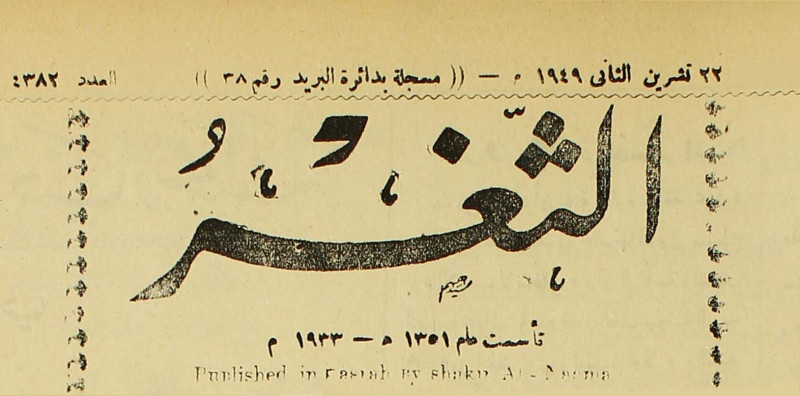 ٢٢ تشرين الثاني ١٩٤٩ م — (( مسجلة بدائرة البريد رقم ٣٨ )) العدد ٤٣٨٢
الثَّغْرُ
تأسست عام ١٣٥١ ه — ١٩٣٣ م
Published in Basrah by shakir Al - Neema